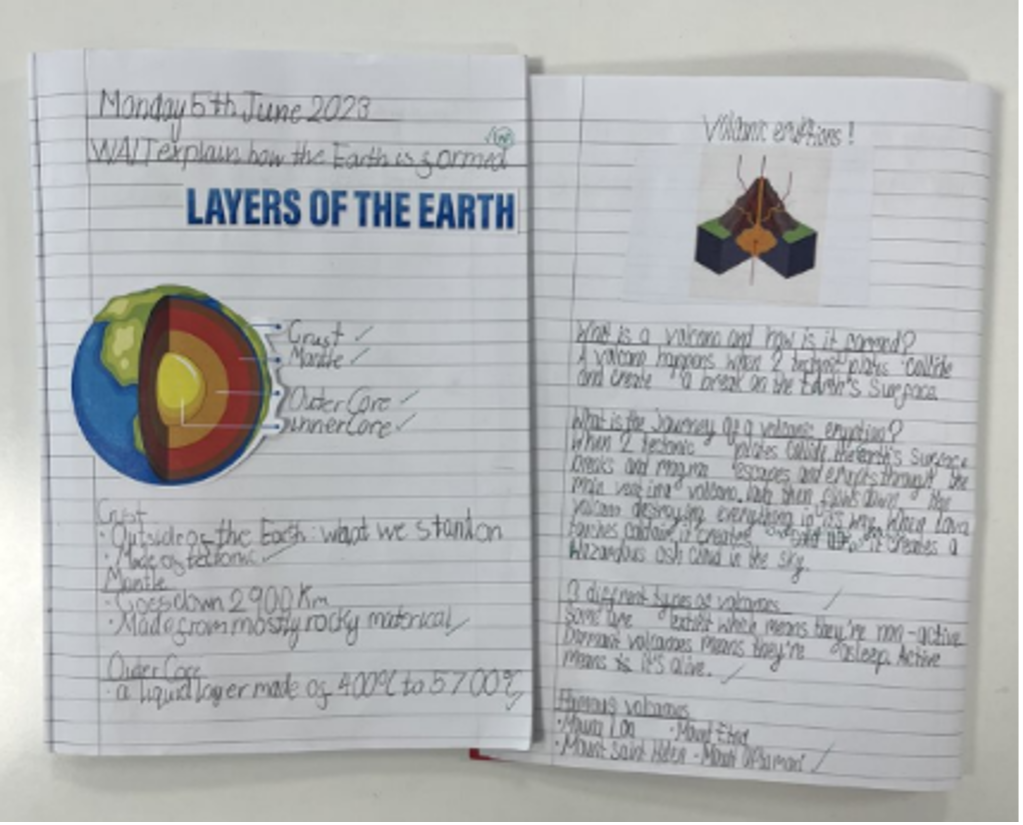 Monday 5th June 2023
WALT explain how the Earth is formed
LAYERS OF THE EARTH
Crust
Mantle
Outer Core
Inner Core
Crust
· Outside of the Earth: what we stand on
· Made of tectonic
Mantle
· Goes down 2900 Km
· Made from mostly rocky material
Outer Core
· a liquid layer made of 400°C to 5700°C
Volcanic eruptions!
What is a volcano and how is it formed?
A volcano happens when 2 tectonic plates collide
and create a break on the Earth's Surface.
What is the Journey of a volcanic eruption?
When 2 tectonic plates collide the earth's Surface
breaks and magma escapes and erupts through the
main vent volcano. then flows down the
volcano destroying everything in its way. When Lava
touches it creates it creates a
hazardous ash cloud in the sky.
3 different types of volcanoes
Some are extinct which means they're non-active
Dormant volcanoes means they're asleep. Active
means it's alive.
Famous volcanoes
· Mauna Loa · Mount Etna
· Mount Saint Helen · Mount